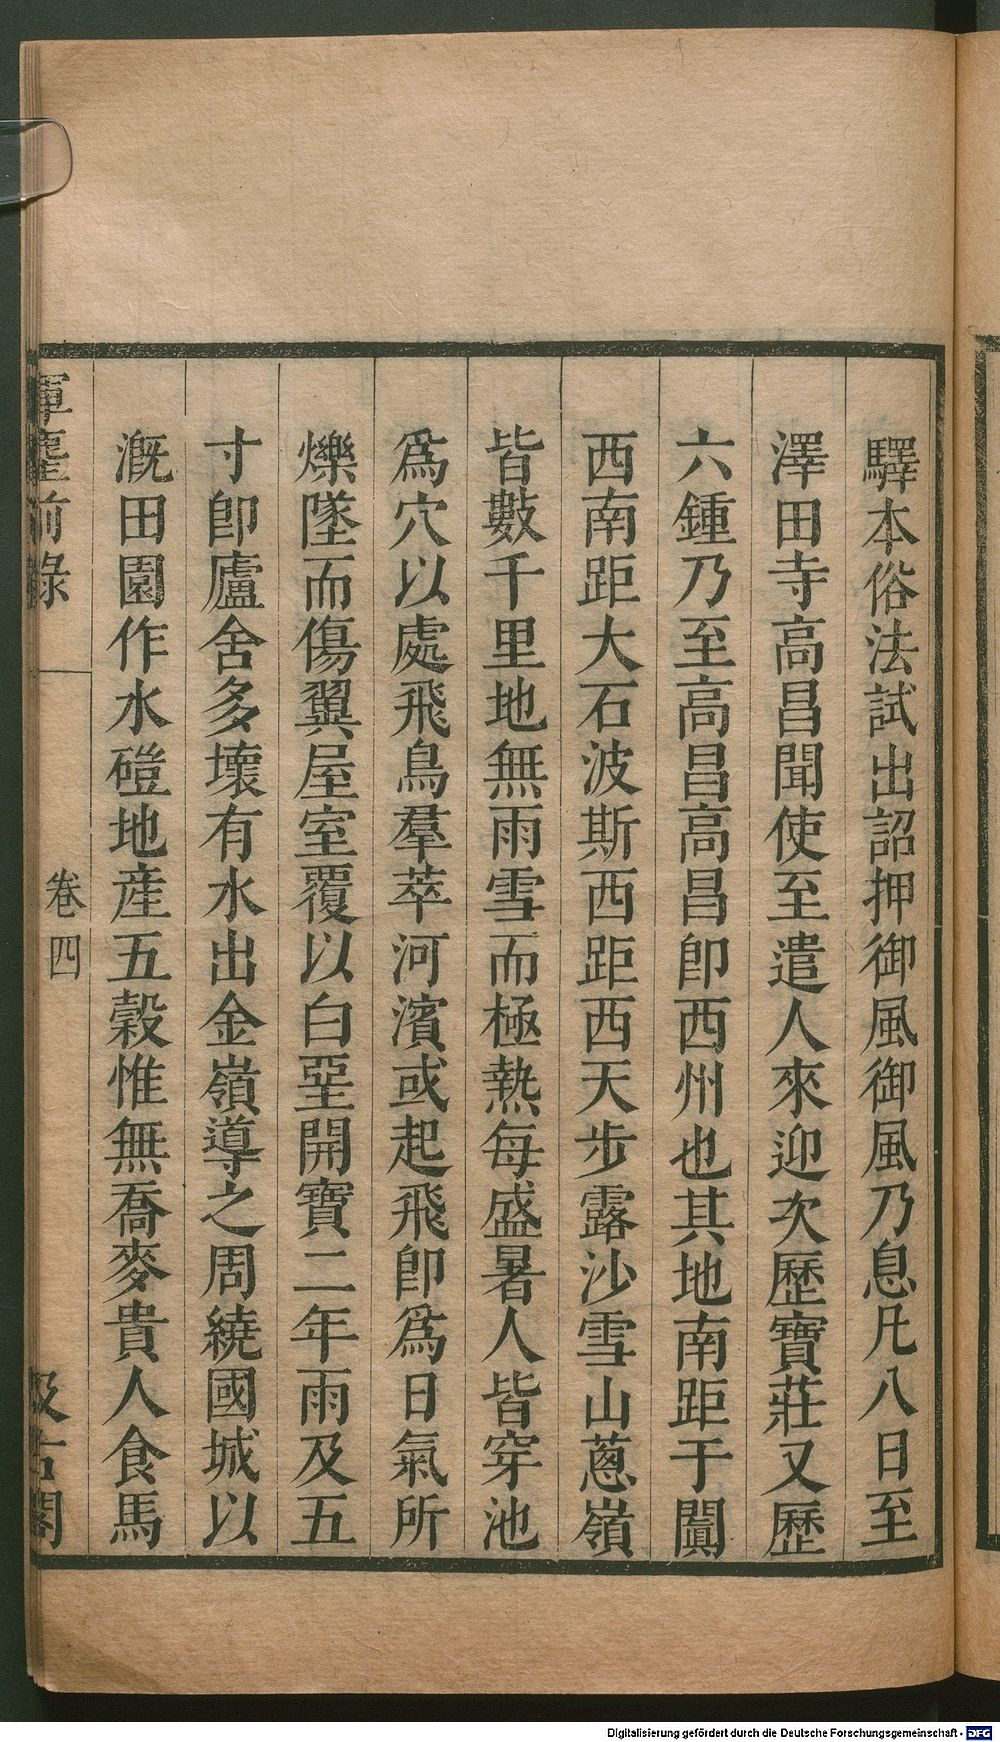 驛本俗法試出詔押御風御風乃息凡八日至
澤田寺高昌聞使至遣人來迎次歷寶莊又歷
六鍾乃至高昌高昌卽西州也其地南距于闐
西南距大石波斯西距西天步露沙雪山蔥嶺
皆數千里地無雨雪而極熱每盛暑人皆穿池
爲穴以處飛鳥羣萃河濱或起飛卽爲日氣所
爍墜而傷翼屋室覆以白堊開寶二年雨及五
寸卽廬舍多壞有水出金嶺導之周繞國城以
漑田園作水磑地產五穀惟無喬麥貴人食馬
揮麈前錄 卷四 汲古閣
Digitalisierung gefördert durch die Deutsche Forschungsgemeinschaft - DFG